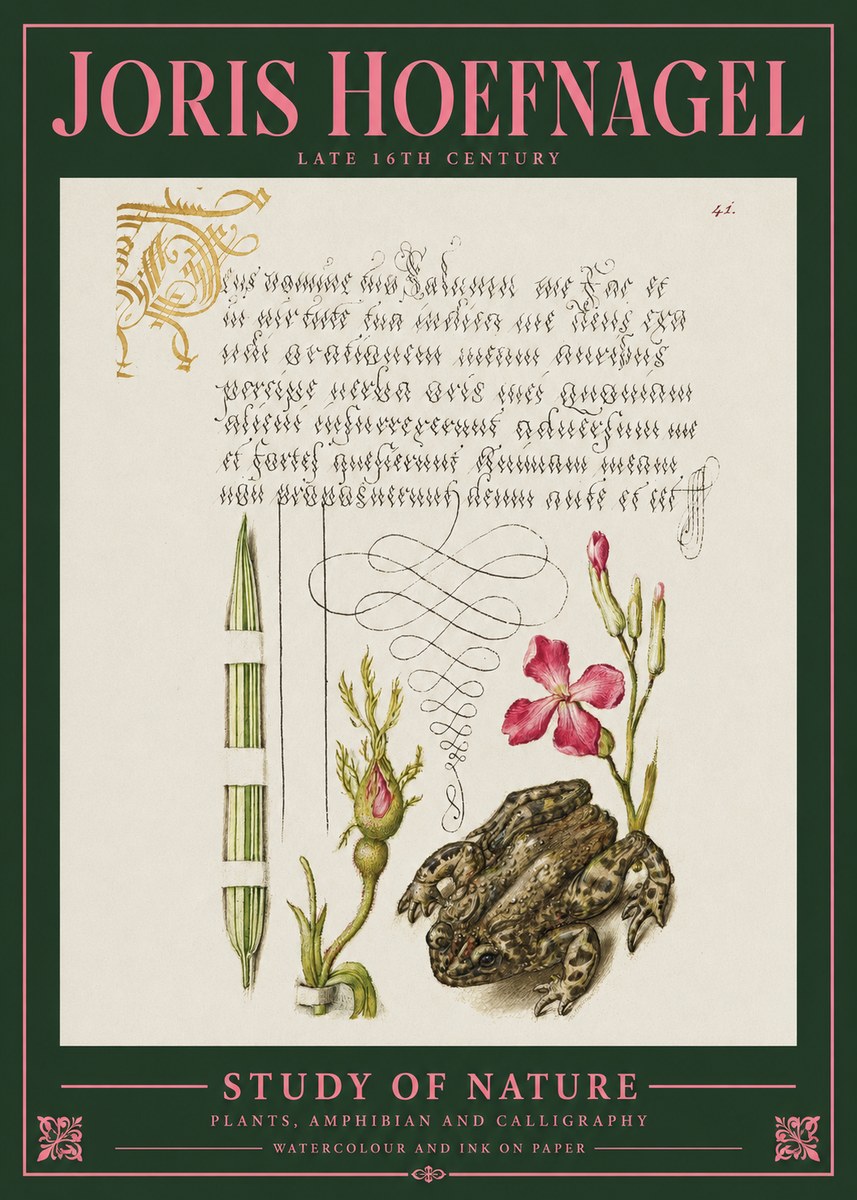 JORIS HOEFNAGEL
LATE 16TH CENTURY
41.
nomine tuo Saluum me Fac et
in uirtute tua iudica me Deus exa
udi orationem meam auribus
percipe uerba oris mei Quoniam
alieni insurrexerunt aduersum me
et fortes quesierunt Animam meam
non proposuerunt deum ante et
STUDY OF NATURE
PLANTS, AMPHIBIAN AND CALLIGRAPHY
WATERCOLOUR AND INK ON PAPER